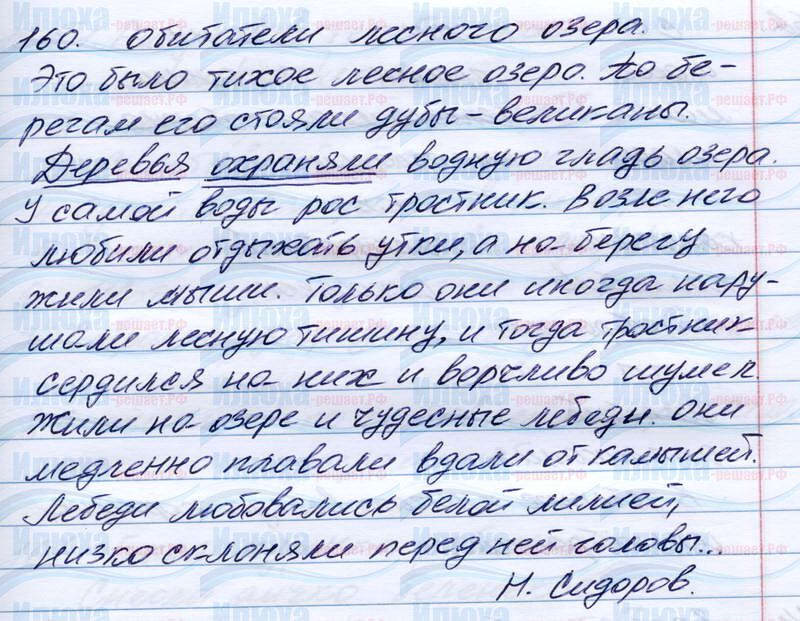 160. Обитатели лесного озера.
Это было тихое лесное озеро. По бе-
регам его стояли дубы - великаны.
Деревья охраняли водную гладь озера.
У самой воды рос тростник. Возле него
любили отдыхать утки, а на берегу
жили мыши. Только они иногда нару-
шали лесную тишину, и тогда тростник
сердился на них и ворчливо шумел.
Жили на озере и чудесные лебеди. Они
медленно плавали вдали от камышей.
Лебеди любовались белой лилией,
низко склоняли перед ней головы...
Н. Сидоров.